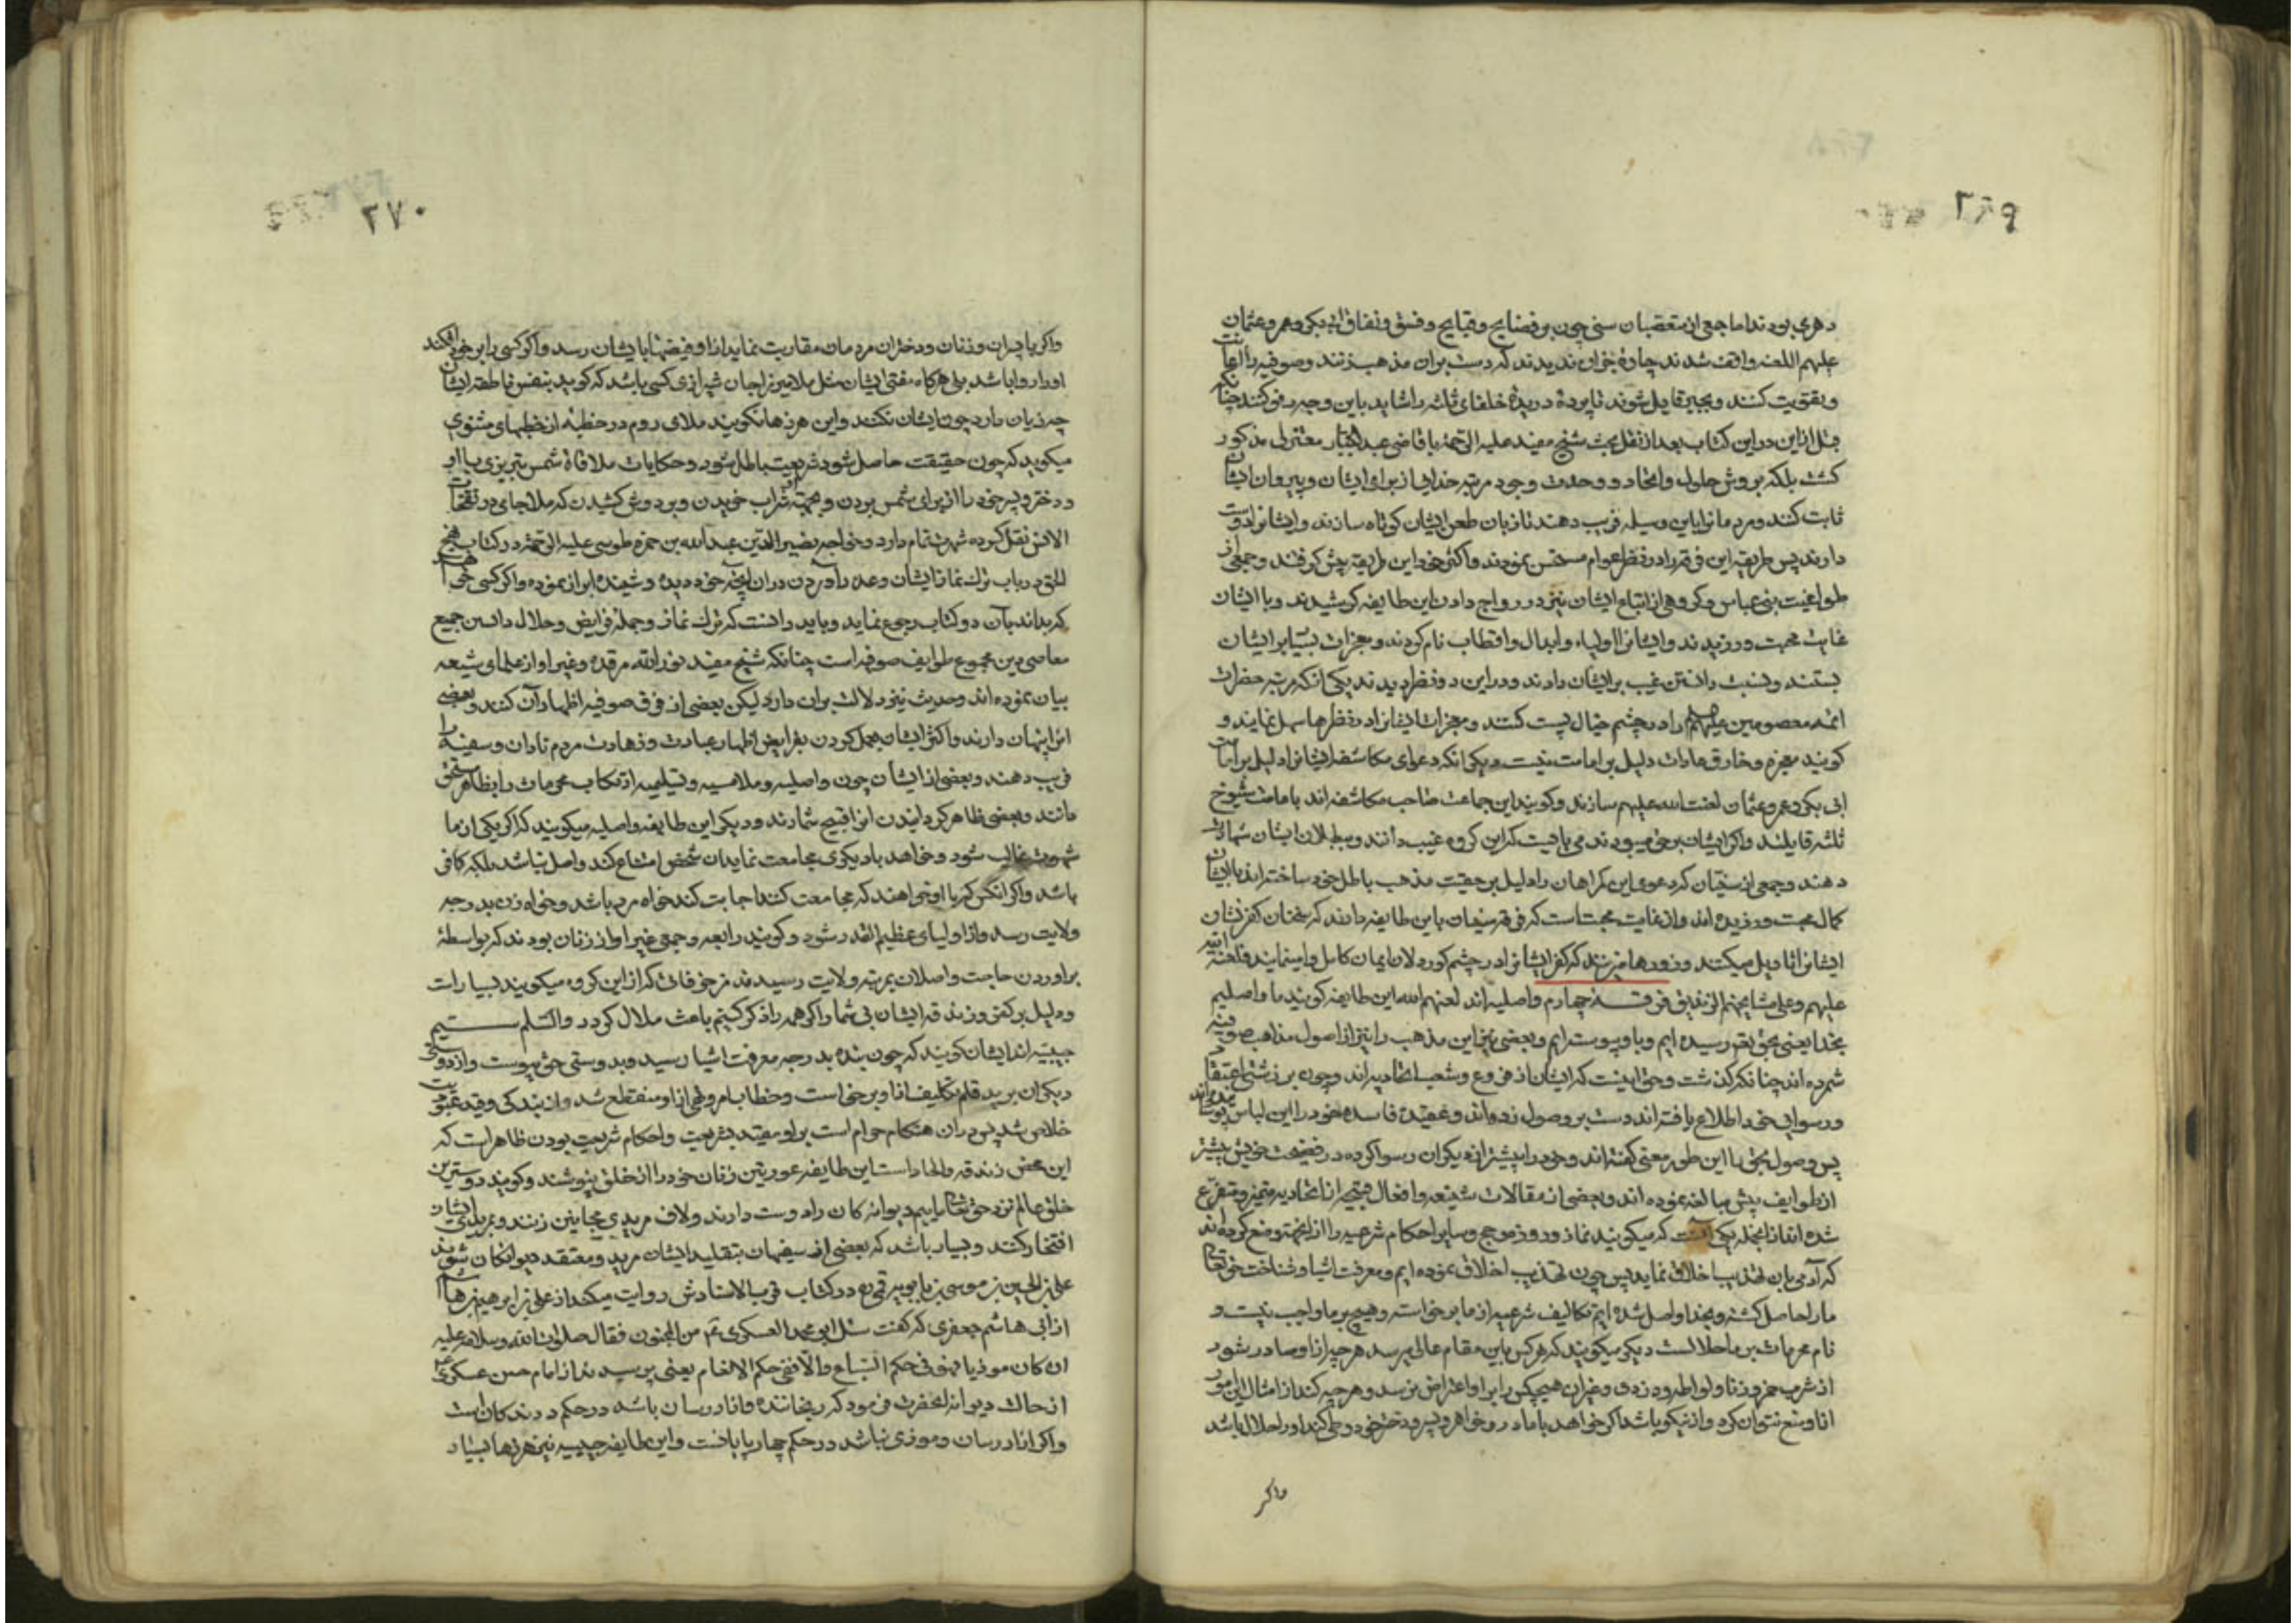 ۲۶۹
دهری بودند اما جمعی از متعصبان سنی چون بر فضایح و قبایح و فسق و نفاق ابی بکر و عمر و عثمان
علیهم اللعنه واقف شدند چارهٔ جز آن ندیدند که دست بر آن مذهب زنند و صوفیه را اعانت
و تقویت کنند و بجبر قایل شوند تا پردهٔ دریدهٔ خلفای ثلثه را شاید باین وجه رفو کنند چنانکه
قبل ازین در این کتاب بعد از نقل بحث شیخ مفید علیه الرحمة با قاضی عبد الجبار معتزلی مذکور
کشت بلکه بروش حلول و اتحاد و وحدت وجود مرتبه خدایی از برای ایشان و پیروان ایشان
ثابت کنند و مردمانرا باین وسیله فریب دهند تا زبان طعن ایشان کوتاه سازند و ایشانرا دوست
دارند پس طریقه این فرقه را در نظر عوام مستحسن نمودند و اکثر خود این طریقه پیش کرفتند و جمعی از
طواغیت بنی عباس و کروهی از اتباع ایشان نیز در رواج دادن این طایفه کوشیدند و با ایشان
غایت محبت ورزیدند و ایشانرا اولیاء و ابدال و اقطاب نام کردند و معجزات بسیار بر ایشان
بستند و نسبت دانستن غیب بر ایشان دادند و در این دو نظر دیدند یکی آنکه مرتبه حضرات
ائمه معصومین علیهم را در چشم خیال پست کنند و معجزات ایشانرا در نظرها سهل نمایند و
کویند معجزه و خارق عادات دلیل بر امامت نیست دیکر آنکه دعوای مکاشفه ایشانرا دلیل بر امامت
ابی بکر و عمر و عثمان لعنت الله علیهم سازند و کویند این جماعت صاحب مکاشفه اند بامامت شیوخ
ثلثه قایلند و اکر ایشان بر حق نمیبودند می بایست که این کروه غیب دانند و ببطلان ایشان شهادت
دهند و جمعی از سنیان که دعوی این کمراهان را دلیل بر حقیت مذهب باطل خود ساخته اند با ایشان
کمال محبت ورزیده اند و از غایت محبتست که فرقه سنیان باین طایفه دارند که سخنان کفر نشان
ایشانرا تاویل میکنند و زورها میزنند که کفر ایشانرا در چشم کوردلان ایمان کامل وا نمایند فلعنة الله
علیهم و علی مشایخهم الزنادیق فرقه چهارم واصلیه اند لعنهم الله این طایفه کویند ما واصلیم
بخدا یعنی بحق تع رسیده ایم و باو پیوسته ایم و بعضی نیز این مذهب را نیز از اصول مذاهب صوفیه
شمرده اند چنانکه کذشت و حق اینست که ایشان از فروع و شعب اتحادیه اند و چون بر زشتی اعتقاد
و رسوایی خود اطلاع یافته اند دست بر وصول زده اند و عقیدهٔ فاسده خود را این لباس پوشانیده اند
پس وصول بحق را این طور معنی کفته اند و خود را بیشتر از دیکران رسوا کرده در فضیحت خویش بیشتر
از طوایف پیش مبالغه نموده اند و بعضی از مقالات شنیعه و افعال قبیحه از اتحادیه متمیز و متفرع
شده اند از انجمله یکی آنست که میکویند نماز و روزه و حج و سایر احکام شرعیه را از آنجهة وضع کرده اند
که آدمی بآن تهذیب اخلاق نماید پس چون تهذیب اخلاق نموده ایم و معرفت اشیا و شناخت حق تعالی
ما را حاصل کشته و بخدا واصل شده ایم تکالیف شرعیه از ما برخواسته و هیچ بر ما واجب نیست و
تمام محرمات بر ما حلالست دیکر میکویند که هر کس باین مقام عالی برسد هر چه از او صادر شود
از شرب خمر و زنا و لواطه و دزدی و غیر آن هیچکس را بر او اعتراض نرسد و هر چه کند از امثال این امور
او را منع نتوان کرد و از نیکو باشد اکر خواهد با مادر و خواهر و پسر و دختر خود وطی کند او را حلال باشد
واکر
۲۷۰
واکر با پسران و زنان و دختران مردمان مقاربت نماید از او فیضها بایشان رسد و اکر کسی را بر خود افکند
او را روا باشد بلی هرکاه مفتی ایشان مثل ملا میرزا جان شیرازی کسی باشد که کوید بنفس ناطقه ایشان
چه زیان دارد چون ایشان نکنند و این هرزها نکویند ملای روم در خطبهٔ از خطبهای مثنوی
میکوید که چون حقیقت حاصل شود شریعت باطل شود و حکایات ملاقاة شمس تبریزی با او
و دختر و پسر خود را از برای شمس بردن و بجهة او شراب خریدن و بر دوش کشیدن که ملا جامی در نفحات
الانس نقل کرده شهرت تمام دارد و خواجه نصیر الدین عبد الله بن حمزه طوسی علیه الرحمة در کتاب نهج
الحق در باب ترک نماز ایشان و عده را آوردن در آن آنچه خود دیده و شنیده ابراز نموده و اکر کسی خواهد
که بداند بآن دو کتاب رجوع نماید و باید دانست که ترک نماز و جمله فرایض و حلال دانستن جمیع
معاصی دین مجموع طوایف صوفیه است چنانکه شیخ مفید نور الله مرقده و غیر او از علمای شیعه
بیان نموده اند و حدیث نیز دلالت بر آن دارد لیکن بعضی از فرق صوفیه اظهار آن کنند و بعضی
آنرا پنهان دارند و اکثر ایشان بعمل کردن بفرایض اظهار عبادت و زهادت مردم نادان و سفیه را
فریب دهند و بعضی از ایشان چون واصلیه و ملامسیه و تسلیمیه ارتکاب محرمات را بظاهر مستحق
مانند و بعضی ظاهر کردانیدن آنرا قبیح شمارند و دیکر این طایفه واصلیه میکویند که اکر یکی از ما
شهوت غالب شود و خواهد با دیکری مجامعت نماید آن شخص امتناع کند واصل نباشد بلکه کافر
باشد و اکر آنکس که با او خواهند که مجامعت کنند اجابت کند خواه مرد باشد و خواه زن بدرجه
ولایت رسد و از اولیای عظیم القدر شود و کویند رابعه و جمعی غیر او از زنان بودند که بواسطهٔ
برآوردن حاجت واصلان بمرتبه ولایت رسیدند مزخرفات که از این کروه میکویند بسیار است
و دلیل بر کفر و زندقه ایشان بی شمار اکر همه را ذکر کنیم باعث ملال کردد والسلم
حبیبیه اند ایشان کویند که چون بنده بدرجه معرفت اشیا رسید و بدوستی حق پیوست و از دوستی
دیکران برید قلم تکلیف از او برخواست و خطاب امر و نهی از او منقطع شد و از بندکی و قید عبودیت
خلاص شد پس در آن هنکام حرام است بر او مقید بشریعت و احکام شریعت بودن ظاهر است که
این محض زندقه و الحاد است این طایفه عورتین زنان خود را از خلق نپوشند و کویند دوسترین
خلق عالم نزد حق تعالی ماییم دیوانه کان را دوست دارند و لاف مریدی مجانین زنند و بمریدی ایشان
افتخار کنند و بسیار باشد که بعضی از سفیهان بتقلید ایشان مرید و معتقد دیوانکان شوند
علی بن الحسین بن موسی بن بابویه قمی ره در کتاب قرب الاسنادش روایت میکند از علی بن ابراهیم بن هاشم
از ابی هاشم جعفری که کفت سئل ابی محمد العسکری ع من المجنون فقال صلوات الله وسلامه علیه
ان کان موذیا فهو فی حکم السباع والا ففی حکم الانعام یعنی پرسیدند از امام حسن عسکری ع
از حالت دیوانه آنحضرت فرمود که رنجاننده و آزار رسان باشد در حکم درندکان است
و اکر آزار رسان و موذی نباشد در حکم چهارپایانست و این طایفه حبیبیه نیز هرزها بسیار